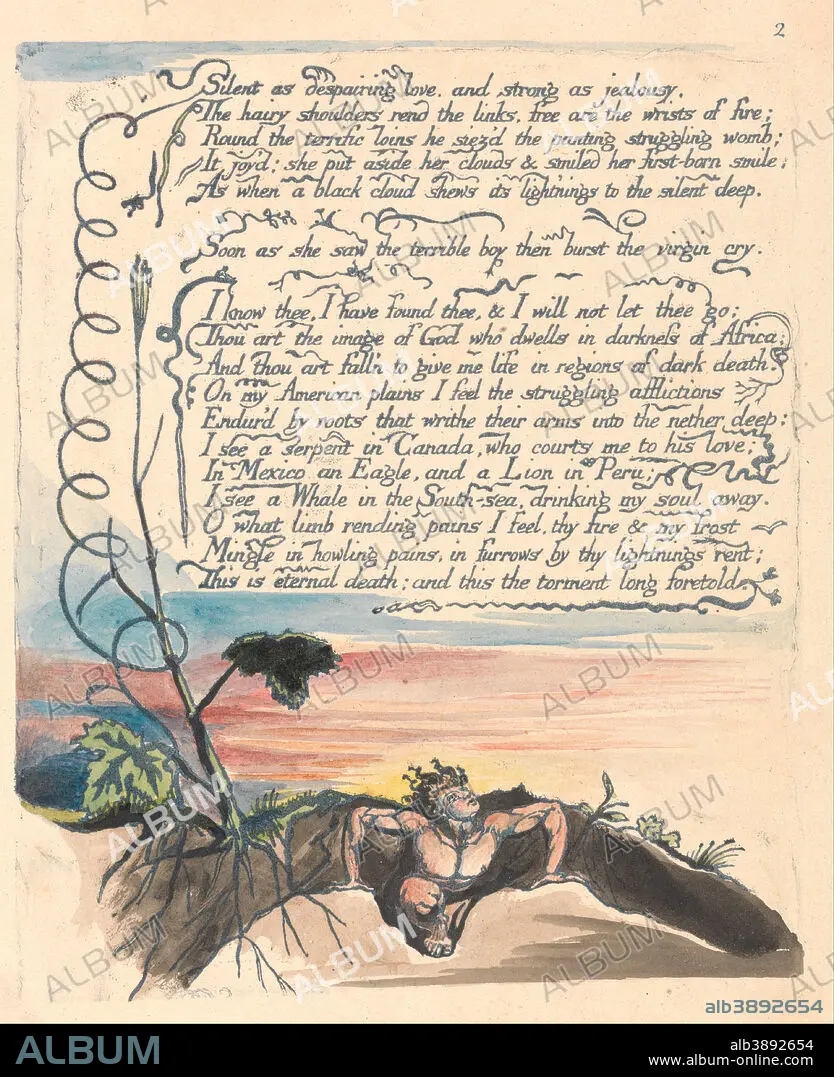 2
Silent as despairing love, and strong as jealousy,
The hairy shoulders rend the links, free are the wrists of fire;
Round the terrific loins he siez'd the panting struggling womb;
It joy'd: she put aside her clouds & smiled her first-born smile;
As when a black cloud shews its lightnings to the silent deep.
Soon as she saw the terrible boy then burst the virgin cry.
I know thee, I have found thee, & I will not let thee go;
Thou art the image of God who dwells in darkness of Africa;
And thou art fall'n to give me life in regions of dark death.
On my American plains I feel the struggling afflictions
Endur'd by roots that writhe their arms into the nether deep:
I see a serpent in Canada, who courts me to his love;
In Mexico an Eagle, and a Lion in Peru;
I see a Whale in the South-sea, drinking my soul away.
O what limb rending pains I feel, thy fire & my frost
Mingle in howling pains, in furrows by thy lightnings rent;
This is eternal death; and this the torment long foretold.
alb3892654
ALBUM
alb3892654
www.album-online.com